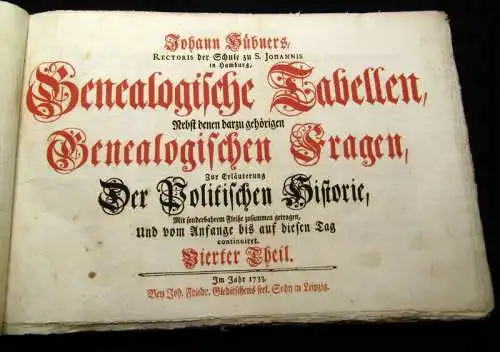 Johann Hübners,
RECTORIS der Schule zu S. JOHANNIS
in Hamburg,
Genealogische Tabellen,
Nebst denen darzu gehörigen
Genealogischen Fragen,
Zur Erläuterung
Der Politischen Historie,
Mit sonderbahrem Fleiße zusammen getragen,
Und vom Anfange bis auf diesen Tag
continuiret.
Vierter Theil.
Im Jahr 1733.
Bey Joh. Friedr. Gleditschens seel. Sohn in Leipzig.